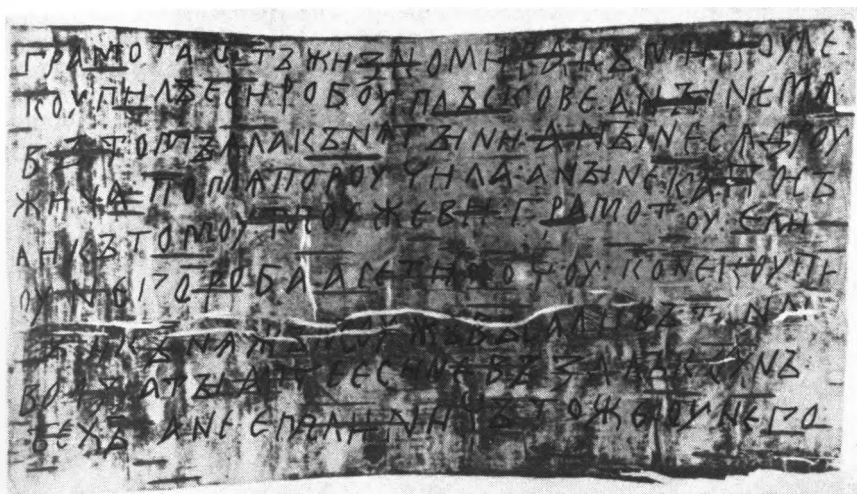 ГРАМОТА ОТЪ ЖИЗНОМИРА КЪ МИКОУЛЕ
КОУПИЛЪ ЕСИ РОБОУ ПЛЪСКОВЕ А НЪІНЕ МѦ
ВЪ ТОМЪ ѦЛА КЪНѦГЪІНИ А НЪІНЕ СѦ ДРОУ
ЖИНА ПО МѦ ПОРОУЧИЛА А НЪІНЕ КА ПОСЪ
ЛИ КЪ ТОМОУ МОУЖЕВИ ГРАМОТОУ ЕЛИ
ОУ НЕГО РОБА А СЕ ТИ ХОЧОУ КОНЕ КОУПИ
ВЪ И КЪНѦЖЪ МОУЖЪ ВЪСАДИВЪ ТА НА СЪ
ВОДЪІ А ТЪІ АТЧЕ ЕСИ НЕ ВЪЗАЛЪ КОУНЪ
ТЕХЪ А НЕ ЕМЛИ НИЧЪТО ЖЕ ОУ НЕГО